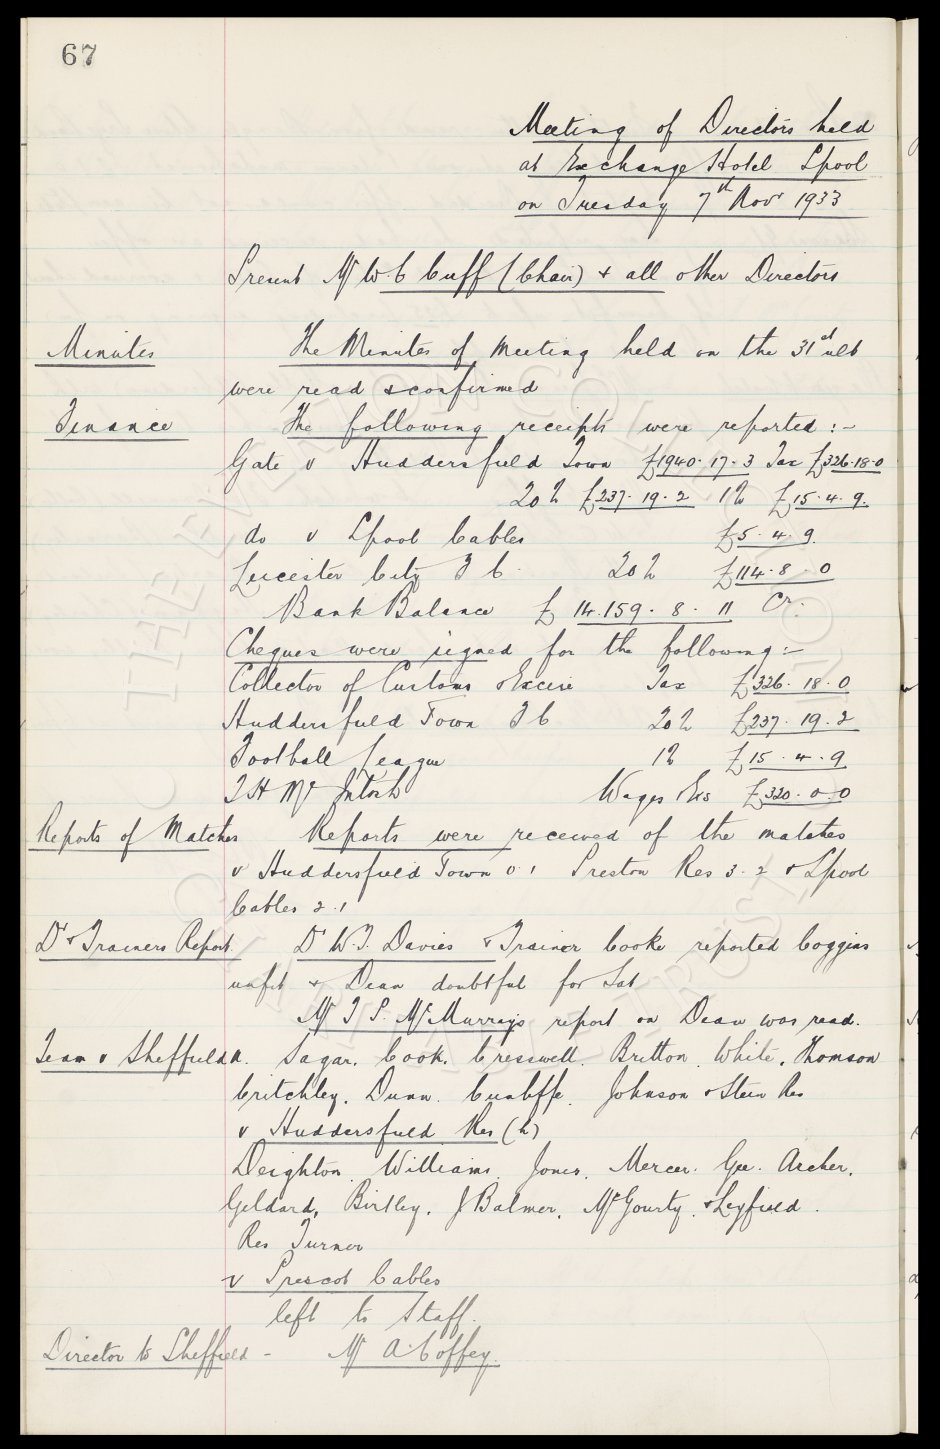 67
Meeting of Directors held
at Exchange Hotel Lpool
on Tuesday 7th Novr 1933
Present Mr W. C Cuff (Chair) + all other Directors
Minutes The Minutes of Meeting held on the 31st ult
were read & confirmed
Finance The following receipts were reported :-
Gate v Huddersfield Town £1940.17.3 Tax £326.18.0
20% £237.19.2 1% £15.4.9.
do v Lpool Cables £5.4.9.
Leicester City F C. 20% £114.8.0
Bank Balance £14.159.8.11 Cr.
Cheques were signed for the following :-
Collector of Customs & Excise Tax £326.18.0
Huddersfield Town F C 20% £237.19.2
Football League 1% £15.4.9
T H McIntosh Wages & Exs £320.0.0
Reports of Matches Reports were received of the matches
v Huddersfield Town 0.1 Preston Res 3.2 & Lpool
Cables 2.1
Dr & Trainers Report. Dr W. T. Davies & Trainer Cooke reported Coggins
unfit & Dean doubtful for Sat
Mr T P. McMurray's report on Dean was read.
Team v Sheffield A. Sagar. Cook. Cresswell. Britton. White. Thomson
Critchley. Dunn. Cunliffe. Johnson & Stein Res
v Huddersfield Res (h)
Deighton. Williams. Jones. Mercer. Gee. Archer.
Geldard, Birtley. J Balmer. McGourty. & Leyfield.
Res Turner
v Prescot Cables
left to Staff.
Director to Sheffield - Mr A. Coffey.
THE EVERTON COLLECTION
CHARITABLE TRUST